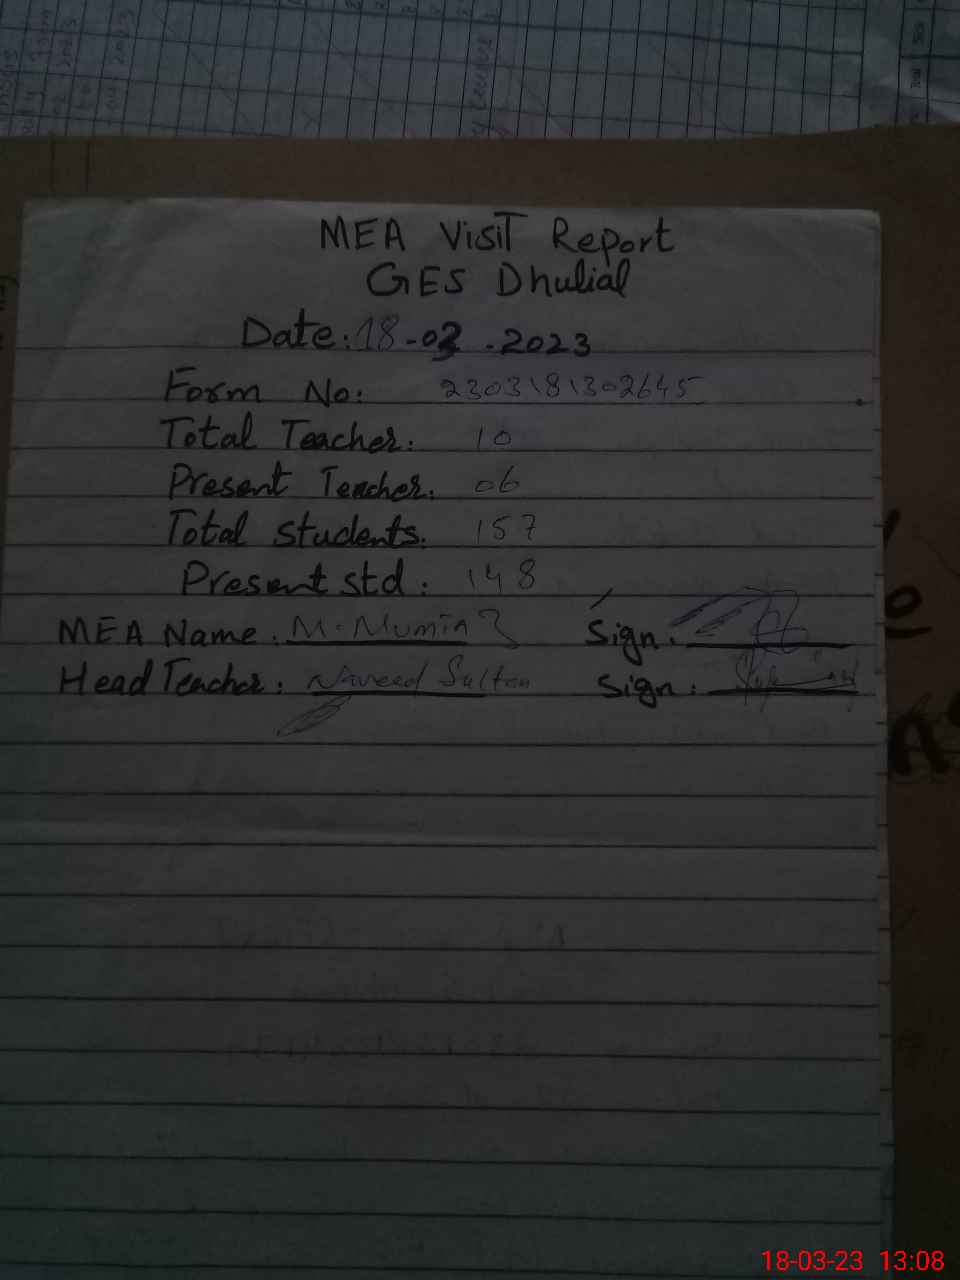 MEA Visit Report
GES Dhulial
Date: 18-03-2023
Form No: 2303181302645
Total Teacher: 10
Present Teacher. 06
Total Students. 157
Present std: 148
MEA Name: M. Mumin Sign.
Head Teacher: Naveed Sultan Sign:
18-03-23 13:08